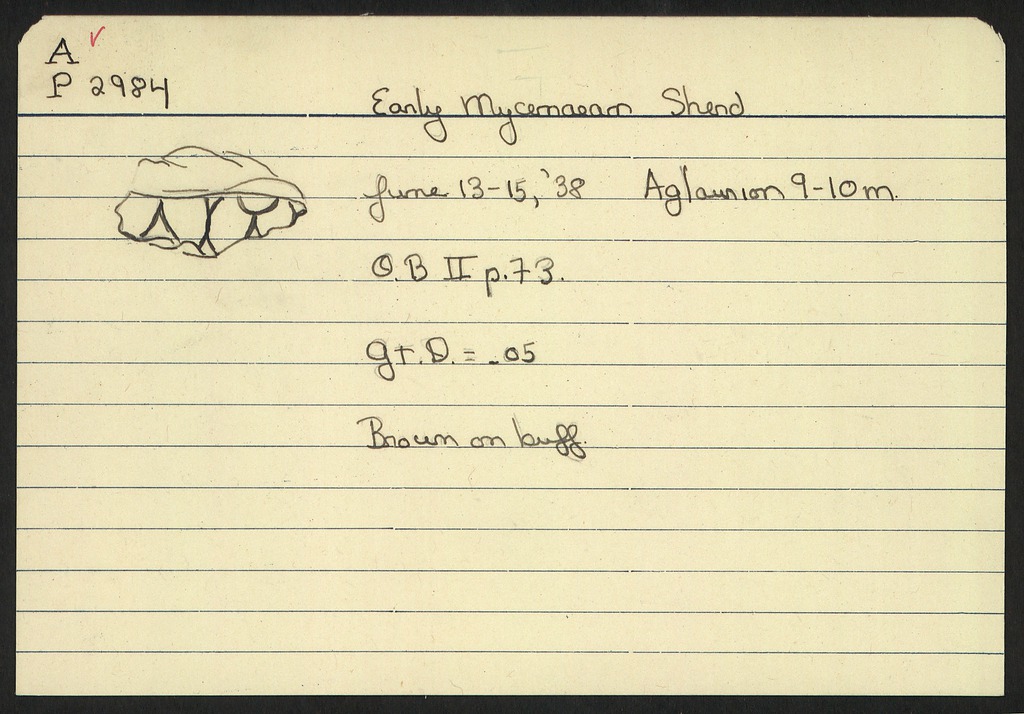 A
P 2984
Early Mycenaean Sherd
June 13-15, '38 Aglaurion 9-10 m.
O.B II p. 73.
gr. D. = .05
Brown on buff.